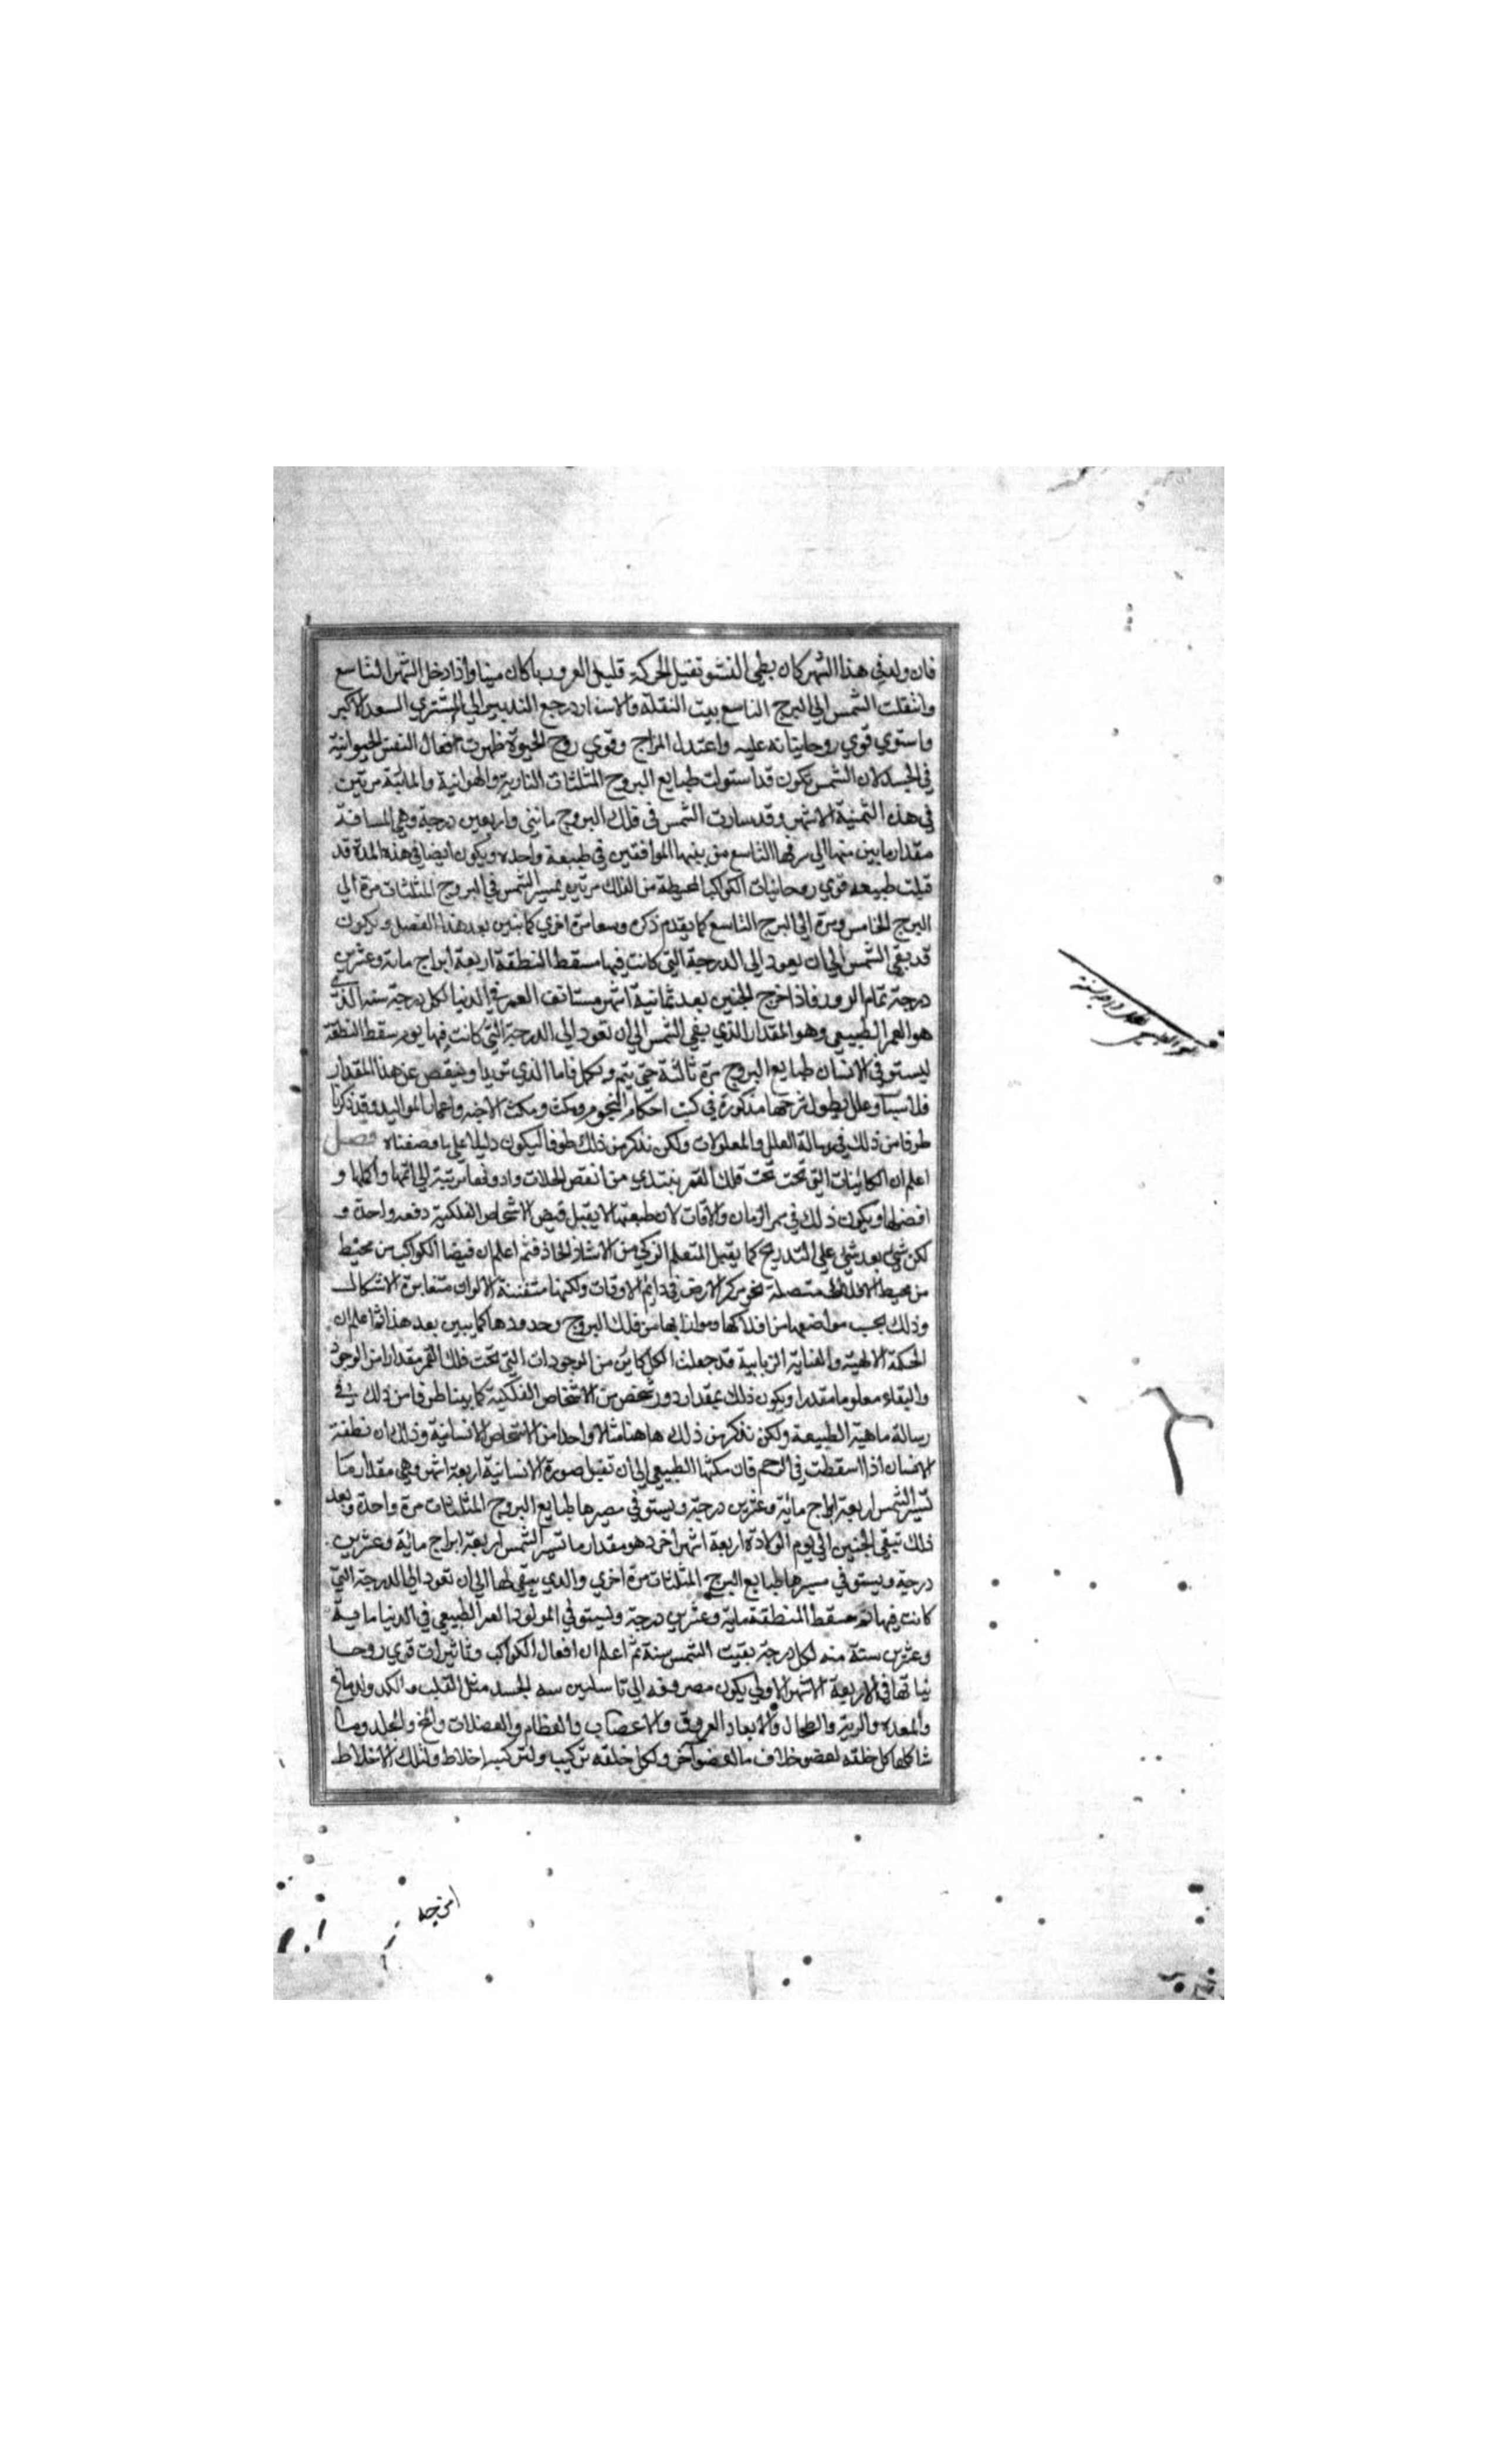 فان ولد في هذا الشهر كان بطي النشو ثقيل الحركة قليل العمر وربما كان ميتا واذا دخل الشهر التاسع
وانتقلت الشمس الي البرج التاسع بيت النقلة والاسفار رجع التدبير الي المشتري السعد الاكبر
واستوي قوي روحانياته عليه واعتدل المزاج وقوي روح الحيوة ظهرت افعال النفس الحيوانية
في الجسد لان الشمس تكون قد استولت طبايع البروج المثلثات النارية والهوائية والمائية مرتين
في هذه الثمنية الاشهر وقد سارت الشمس في فلك البروج مائتي واربعين درجة وهي المسافة
مقدار ما بين منها الي شرفها التاسع من بيتها الموافقين في طبيعة واحده ويكون ايضا في هذه المدة قد
قبلت طبيعه قوي روحانيات الكواكب المحيطة من الفلك مرتين بمسير الشمس في البروج المثلثات مرة الي
البرج الخامس ومرة الي البرج التاسع كما يقدم ذكره وسعا مرة اخري كما نبين بعد هذا الفصل ويكون
قد بقي الشمس الي ان يعود الي الدرجة التي كانت فيها مسقط النطقة اربعة ابراج ماية وعشرين
درجة تمام الدور فاذا خرج الجنين بعد ثمانية اشهر مستانف العمر في الدنيا لكل درجة سنه الذي
هو العمر الطبيعي وهو المقدار الذي بقي الشمس الي ان تعود الي الدرجة التي كانت فيها يوم سقط النطقة
ليستوفي الانسان طبايع البروج مرة ثالثة حتي يتم ويكمل فاما الذي يزيد او ينقص عن هذا المقدار
فلاسباب وعلل يطول شرحها مذكورة في كتب احكام النجوم ومكث ومكث الاجنه واعمار المواليد وقد ذكرنا
طرفا من ذلك في رسالة العلل والمعلولات ولكن نذكر من ذلك طرفا ليكون دليلا علي ما وصفناه فصل
اعلم ان الكائنات التي تحت تحت فلك القمر يبتدي من انقص الحلات وادونها مرتبة الي اتمها واكملها و
افضلها ويكون ذلك في ممر الزمان والاقات لان طبيعتها لا يقبل فيض الاشخاص الفلكية دفعه واحدة و
لكن شي بعد شي علي التدريج كما يقبل المتعلم الزكي من الاستاذ الحاذق ثم اعلم ان فيضا الكواكب من محيط
من محيط الافلاك متصلة نحو مركز الارض في دايم الاوقات ولكنها متفننة الالوان متغايرة الاشكال
وذلك بحسب مواضعها من افلاكها وموازاتها من فلك البروج وحدودها كما يبين بعد هذا ثم اعلم ان
الحكمة الالهية والعناية الربانية قد جعلت لكل كائن من الموجودات التي تحت فلك القمر مقدارا من الوجود
والبقاء معلوما مقدرا ويكون ذلك بمقدار دور شخص من الاشخاص الفلكية كما بينا طرفا من ذلك في
رسالة ماهية الطبيعة ولكن نذكر من ذلك هاهنا مثالا واحدا من الاشخاص الانسانية وذلك ان نطفة
الانسان اذا اسقطت في الرحم فان مكثها الطبيعي الي ان تقبل صورة الانسانية اربعة اشهر وهي مقدار ما
تسير الشمس اربعة ابراج مائية وعشرين درجة ويستوفي مصيرها طبايع البروج المثلثات مرة واحدة وبعد
ذلك تبقي الجنين الي يوم الولادة اربعة اشهر اخر وهو مقدار ما تسير الشمس اربعة ابراج مائية وعشرين
درجة ويستوفي مسيرها طبايع البرج المثلثات مرة اخري والذي يبقي لها الي ان تعود الي الدرجة التي
كانت فيها مسقط المنطقة ماية وعشرين درجة وليستوفي المولود العمر الطبيعي في الدنيا ماية
وعشرين سنة منه لكل درجة بقيت الشمس سنة ثم اعلم ان افعال الكواكب وتاثيرات قوي روحا
نياتها في الاربعة الاشهر الاولي يكون مصروفه الي تاسيس بنيه الجسد مثل القلب والكبد والدماغ
والمعده والرية والطحال والابعاد العروق والاعصاب والعظام والعضلات والمخ والجلد وما
شاكلها كل خلقه لعضو خلاف ما لعضو آخر ولكل خلقه تركيب ولتركيب اخلاط ولتلك الاخلاط